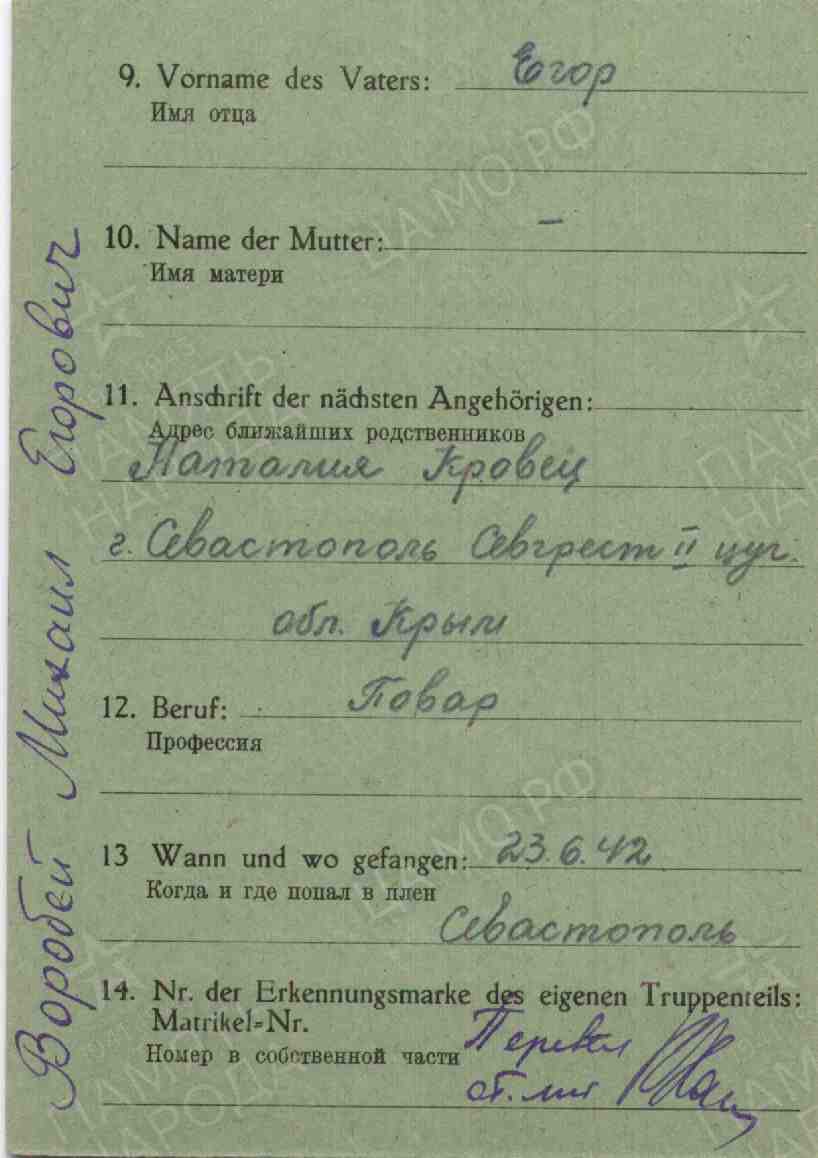 9. Vorname des Vaters: Егор
Имя отца
10. Name der Mutter: –
Имя матери
11. Anschrift der nächsten Angehörigen:
Адрес ближайших родственников
Наталия Кровец
г. Севастополь Севгрест II цуг.
обл. Крым
12. Beruf: Повар
Профессия
13 Wann und wo gefangen: 23.6.42
Когда и где попал в плен
Севастополь
14. Nr. der Erkennungsmarke des eigenen Truppenteils:
Matrikel=Nr.
Номер в собственной части
Перевел
ст. лит
Воробей Михаил Егорович
ЦАМО РФ
ПАМЯТЬ НАРОДА
1945